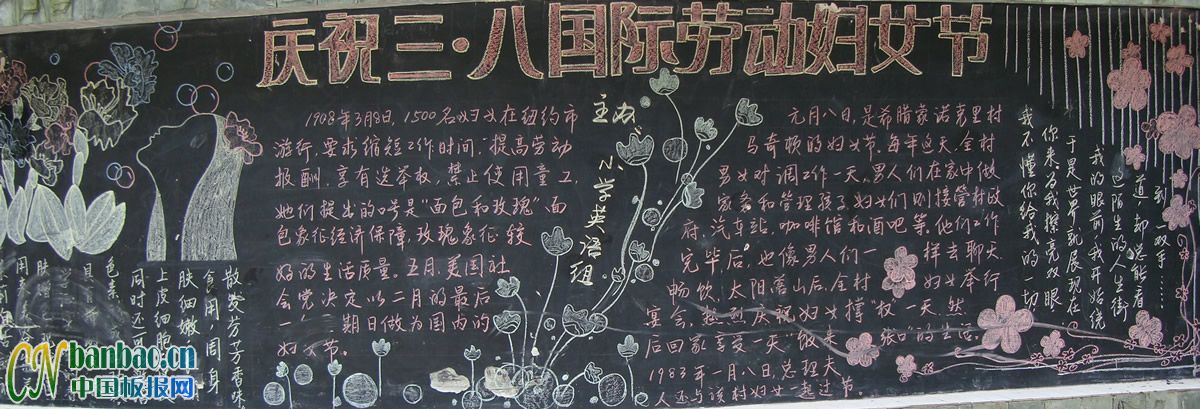 庆祝三·八国际劳动妇女节
1908年3月8日,1500名妇女在纽约市
游行,要求缩短工作时间,提高劳动
报酬,享有选举权,禁止使用童工
她们提出的口号是“面包和玫瑰”面
包象征经济保障,玫瑰象征较
好的生活质量。五月,美国社
会党决定以二月的最后
一个期日做为国内的
妇女节。
主办:
小学英语组
元月八日,是希腊蒙诺克里村
马奇顿的妇女节,每年这天,全村
男女对调工作一天。男人们在家中做
家务和管理孩子,妇女们则接管村政
府、汽车站、咖啡馆和酒吧等。他们工作
完毕后,也像男人们一样去聊天
畅饮。太阳落山后,全村妇女举行
宴会,热烈庆祝妇女撑“权”一天,然
后回家享受一天“饭来张口”的生活。
1983年一月八日,总理夫
人还与该村妇女一起过节。
到一双手……
一道,却总能看
这陌生的人生街
我的眼前,我开始绕
于是世界就展现在
你来为我擦亮双眼
我不懂你给我的一切
散发芳芳香味,
食用,周身
肤细嫩
上皮细胞
同时还
色素
banbao.cn
中国板报网